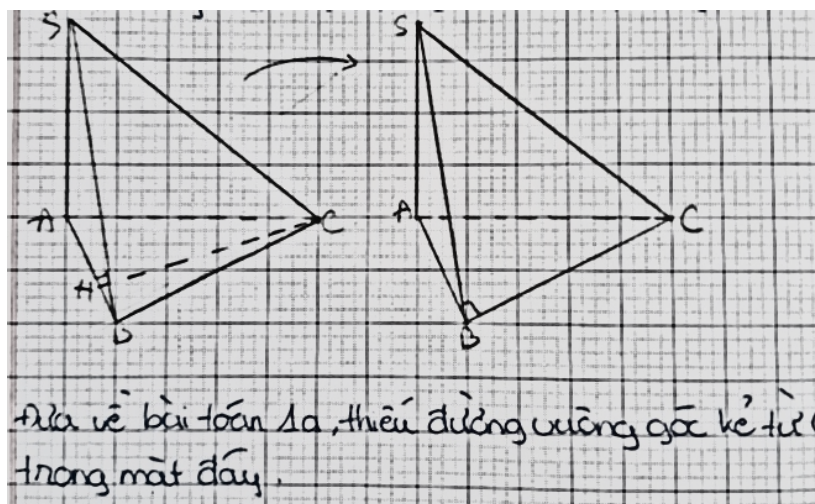 S
S
A
C
A
C
H
B
B
Đưa về bài toán 1a, thiếu đường vuông góc kẻ từ C
trong mặt đáy.